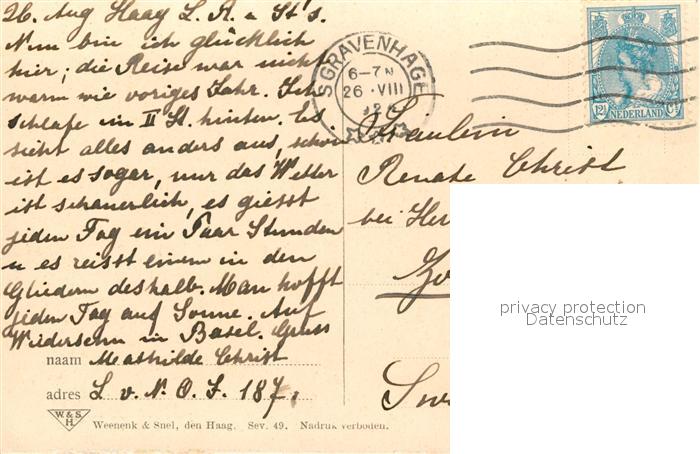 26. Aug Haag L. R. u St's.
Nun bin ich glücklich
hier; die Reise war nicht
warm wie voriges Jahr. Ich
schlafe im II St. hinten. Es
sieht alles anders aus, schön
ist es sogar, nur das Wetter
ist schauerlich, es giesst
jeden Tag ein Paar Stunden
u es reisst einem in den
Gliedern deshalb. Man hofft
jeden Tag auf Sonne. Auf
Wiedersehn in Basel. Gruss
naam Mathilde Christ
adres L. v. N. O. I. 187,
W. & S. H.
Weenenk & Snel, den Haag. Sev. 49. Nadruk verboden.
'S GRAVENHAGE
6-7N
26 .VIII
12½ NEDERLAND ct
Fräulein
Renate Christ
bei Her
privacy protection
Datenschutz